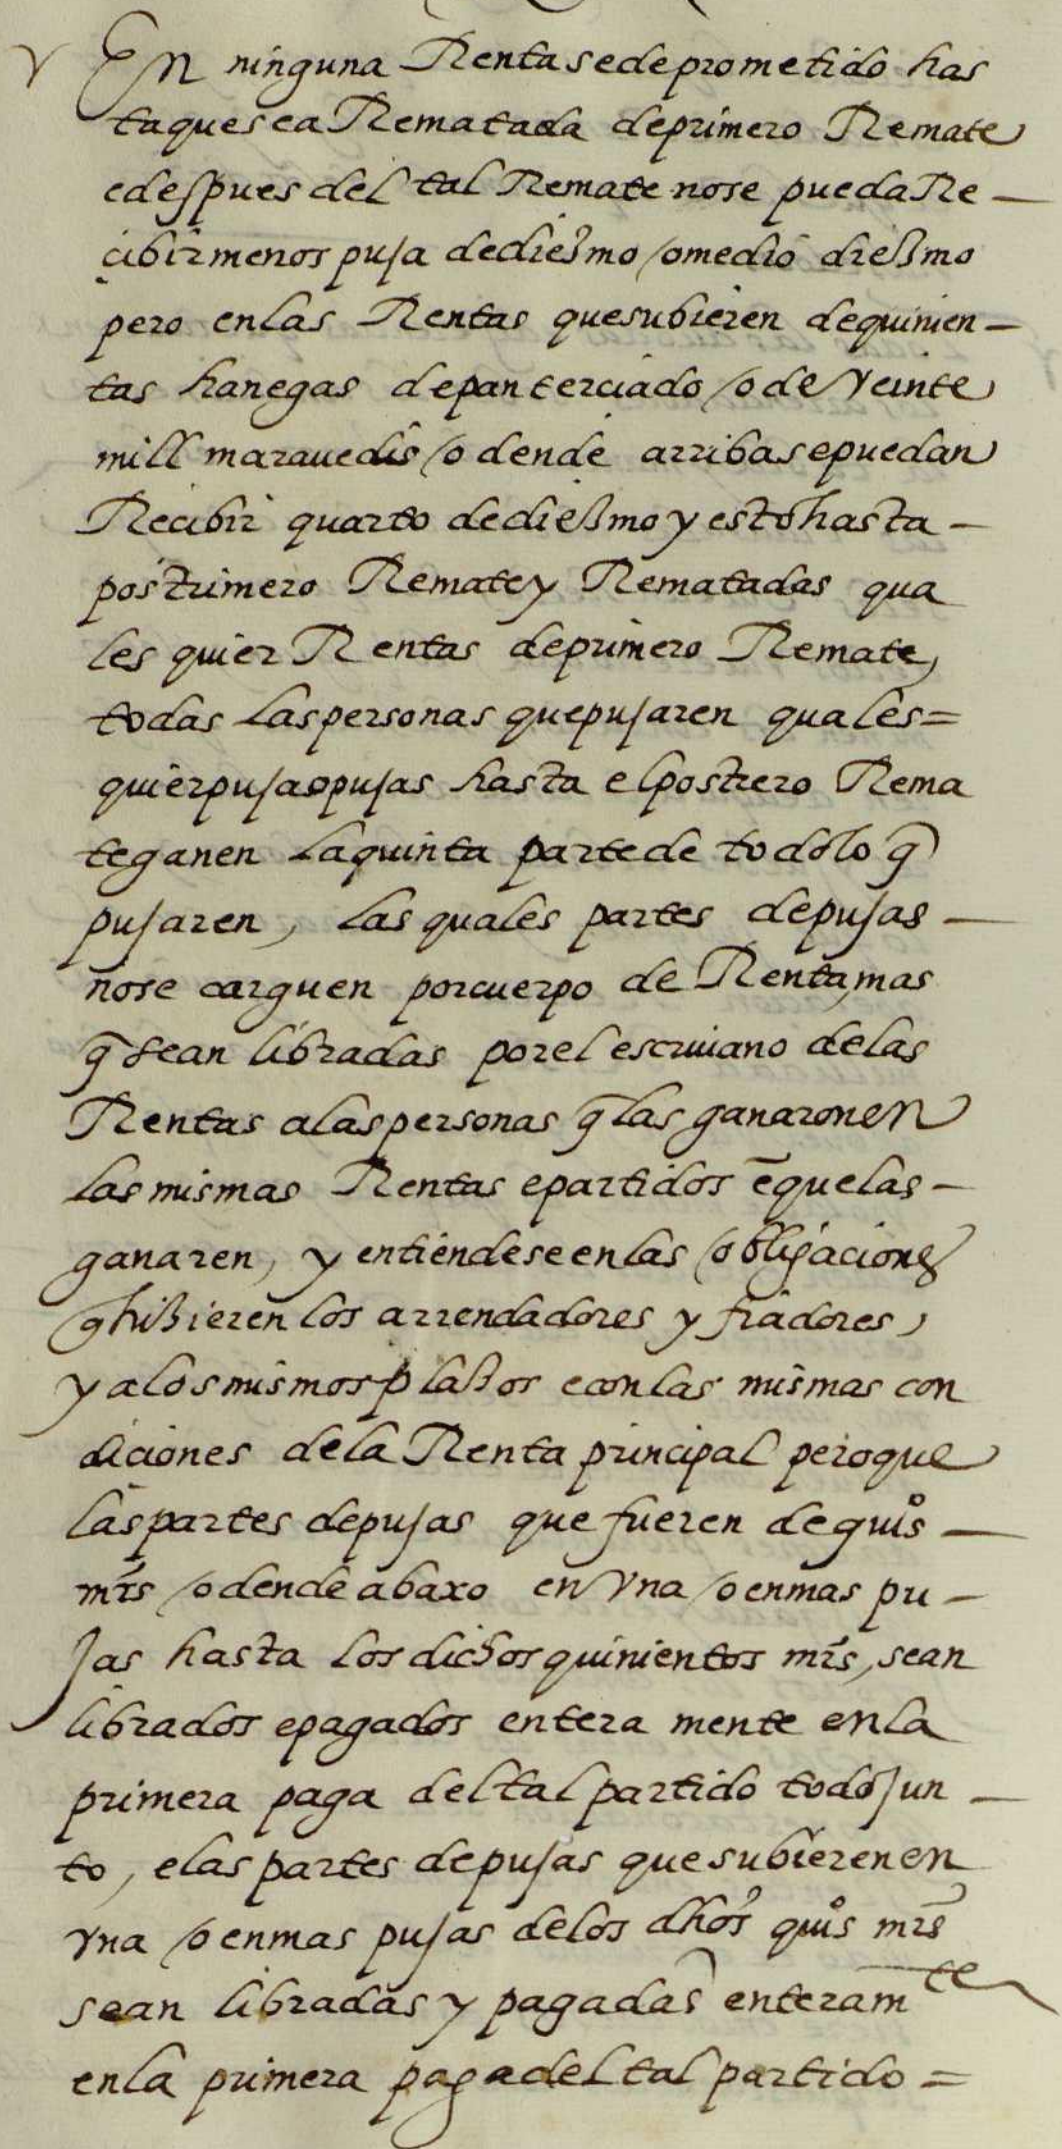 V En ninguna Renta se de prometido has
ta que sea Rematada de primero Remate
e despues del tal Remate no se pueda Re —
çibir menos puja de diesmo /o medio diesmo
pero en las Rentas que subieren de quinien —
tas hanegas de pan terciado /o de veinte
mill marauedis /o dende arriba se puedan
Recibir quarto de diesmo y esto hasta —
postrimero Remate y Rematadas qua
les quier Rentas de primero Remate,
todas las personas que pujaren quales=
quier puja o pujas hasta el postrero Rema
te ganen la quinta parte de todo lo q̄
pujaren, las quales partes de pujas —
no se carguen por cuerpo de Renta, mas
q̄ sean libradas por el escriuano de las
Rentas a las personas q̄ las ganaron en
las mismas Rentas e partidos ē que las —
ganaren, y entiendese en las /obligaciones
q̄ hizieren los arrendadores y fiadores,
y a los mismos plazos e con las mismas con
diciones de la Renta principal pero que
las partes de pujas que fueren de quiºs —
mrs /o dende abaxo en vna /o en mas pu —
jas hasta los dichos quinientos mrs, sean
librados e pagados entera mente en la
primera paga del tal partido todo jun —
to, e las partes de pujas que subieren en
vna /o en mas pujas de los dhos quiºs mrs
sean libradas y pagadas enteramte
en la primera paga del tal partido =